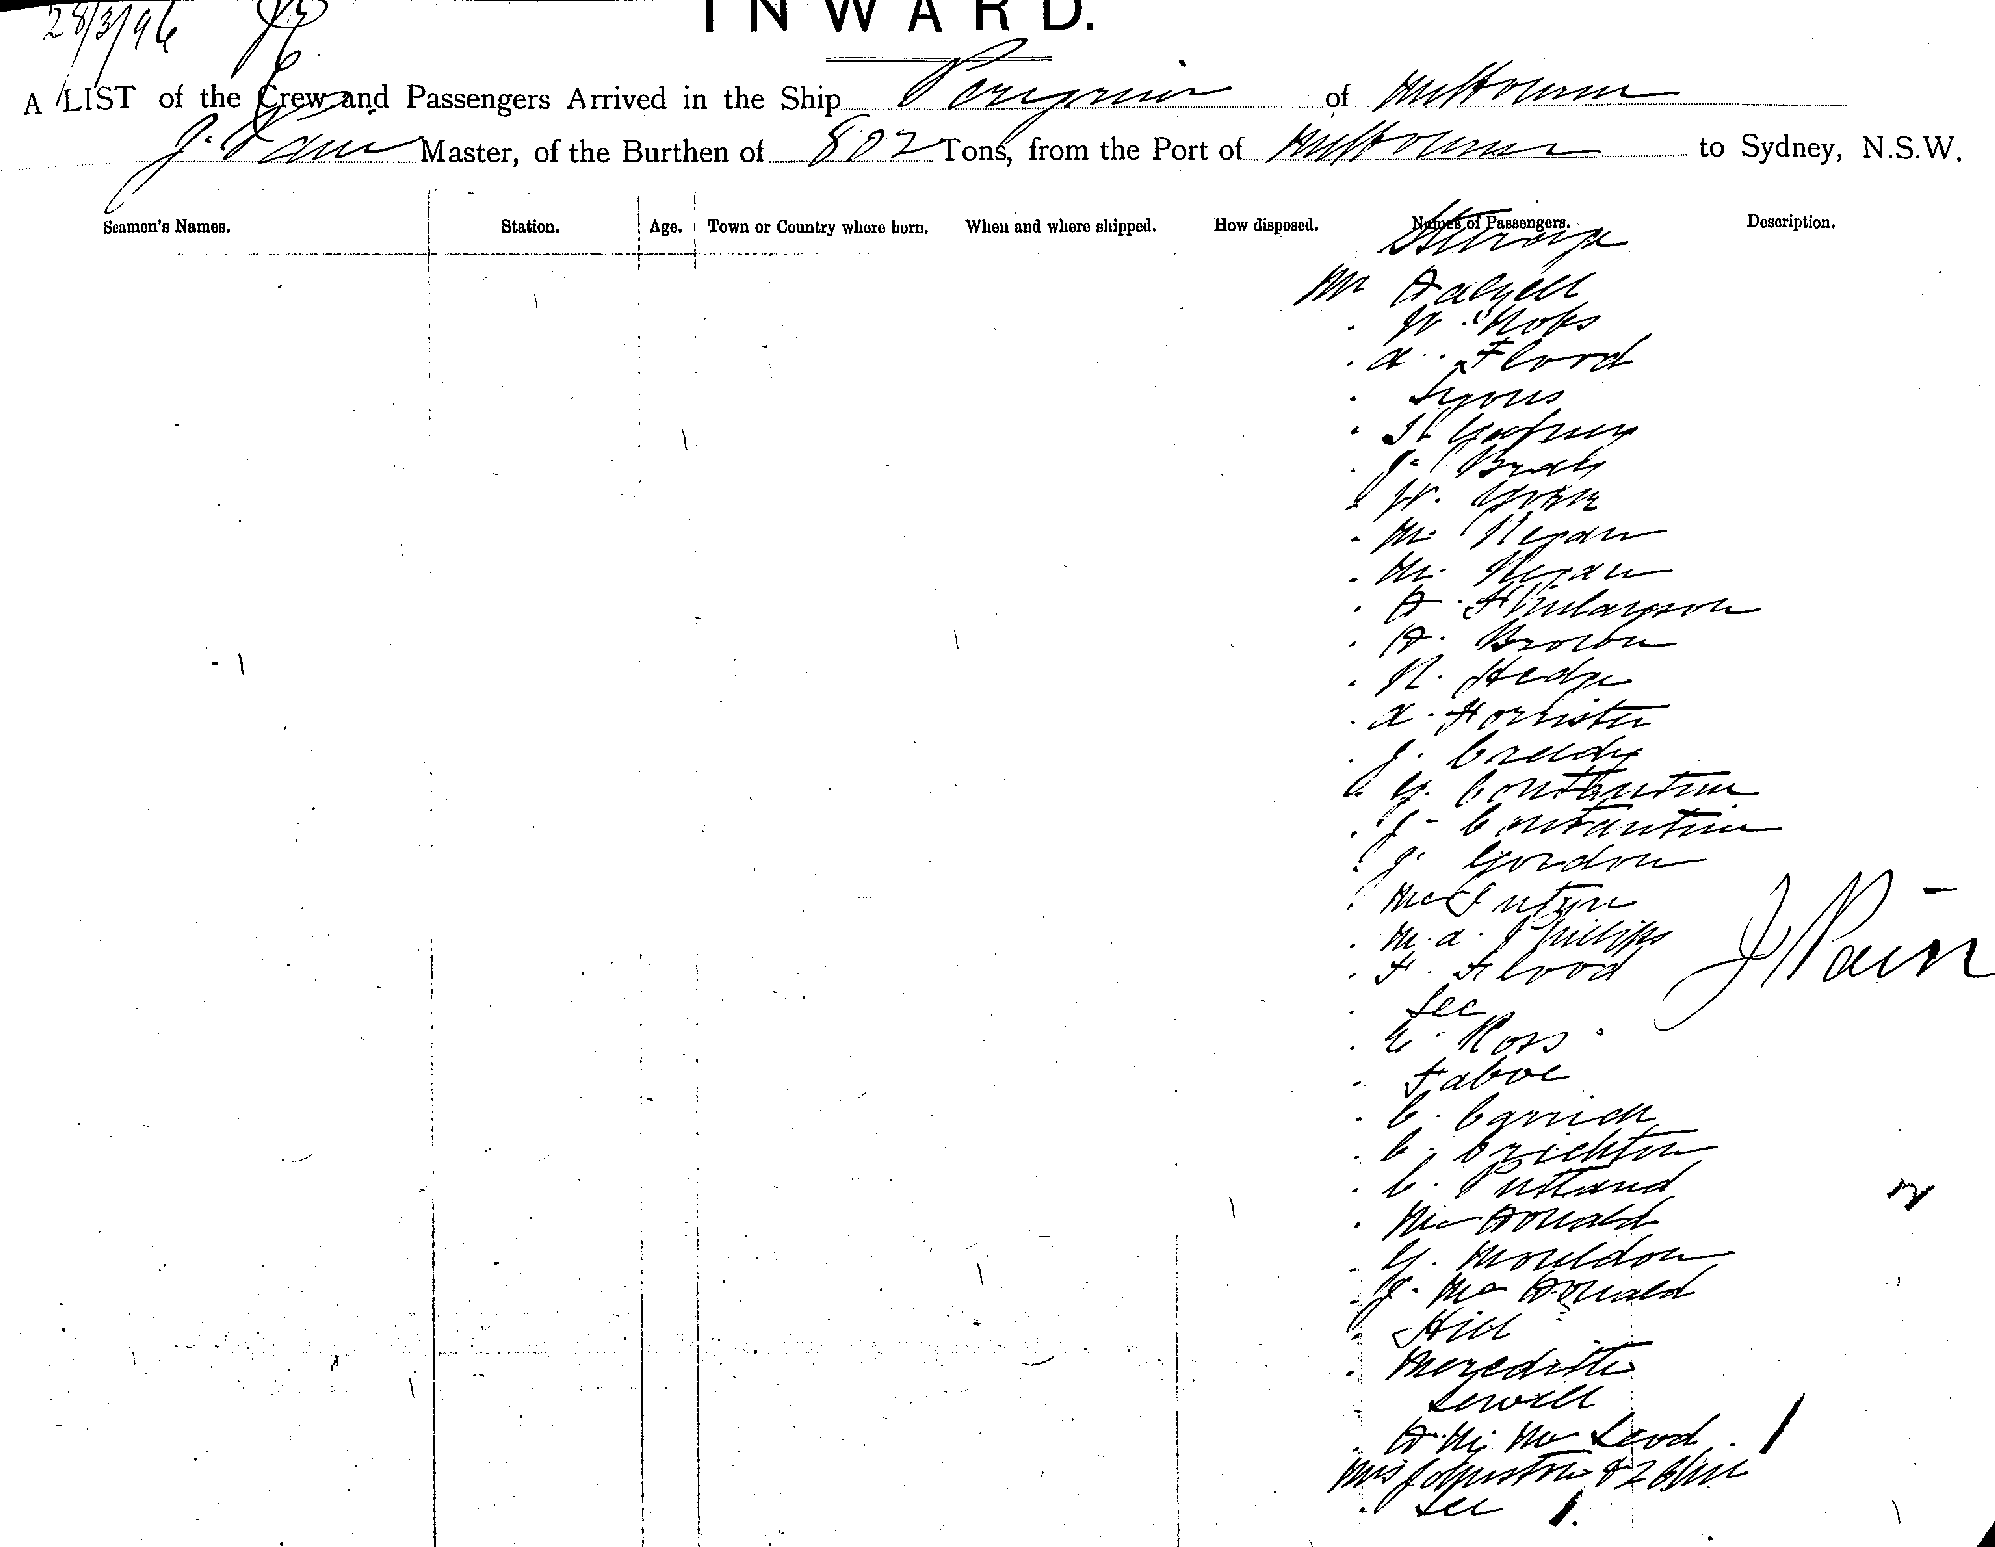 28/3/96
INWARD.
A LIST of the Crew and Passengers Arrived in the Ship Peregrine of Melbourne
J. Pain Master, of the Burthen of 802 Tons, from the Port of Melbourne to Sydney, N.S.W.
Seamen's Names. Station. Age. Town or Country where born. When and where shipped. How disposed. Names of Passengers. Description.
Steerage
Mr Dalzell
W. Nobs
A. Flood
Lyons
J. Brady
W.
M. Regan
M. Regan
D. Finlayson
D. Brown
R. Hedge
A. Forrister
J. Creedy
G. Constantine
J. Constantine
J. Gordon
M. A. Phillips
F. Flood
Lee
E. Ross
Faboe
C. Carrick
C. Crichton
C. Putland
McDonald
G. Mouldon
J. McDonald
Hill
Meredith
Sewell
D. M. McLeod
Mrs Johnstone & 2 Chn
Lee
J Pain